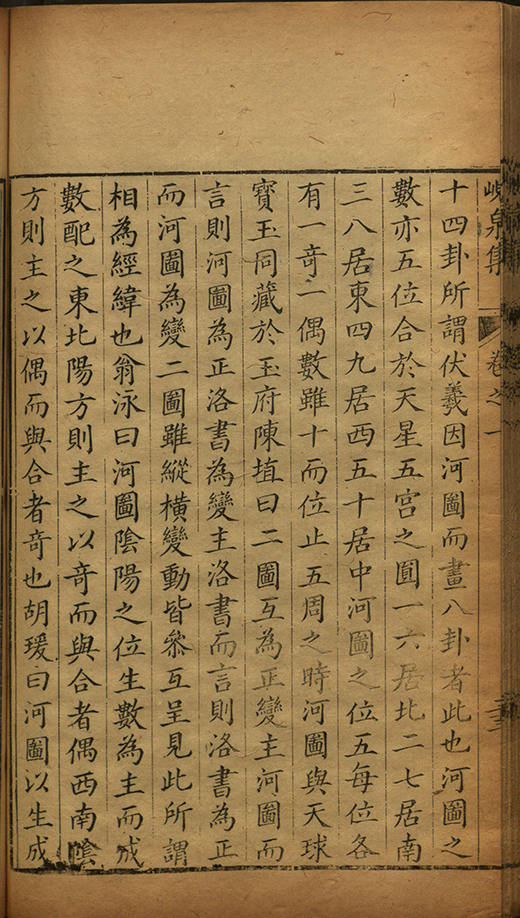 峴泉集 卷之一
十四卦所謂伏羲因河圖而畫八卦者此也河圖之
數亦五位合於天星五宫之圓一六居北二七居南
三八居東四九居西五十居中河圖之位五每位各
有一奇一偶數雖十而位止五周之時河圖與天球
寳玉同藏於玉府陳埴曰二圖互為正變主河圖而
言則河圖為正洛書為變主洛書而言則洛書為正
而河圖為變二圖雖縱橫變動皆叅互呈見此所謂
相為經緯也翁泳曰河圖陰陽之位生數為主而成
數配之東北陽方則主之以奇而與合者偶西南陰
方則主之以偶而與合者竒也胡瑗曰河圖以生成